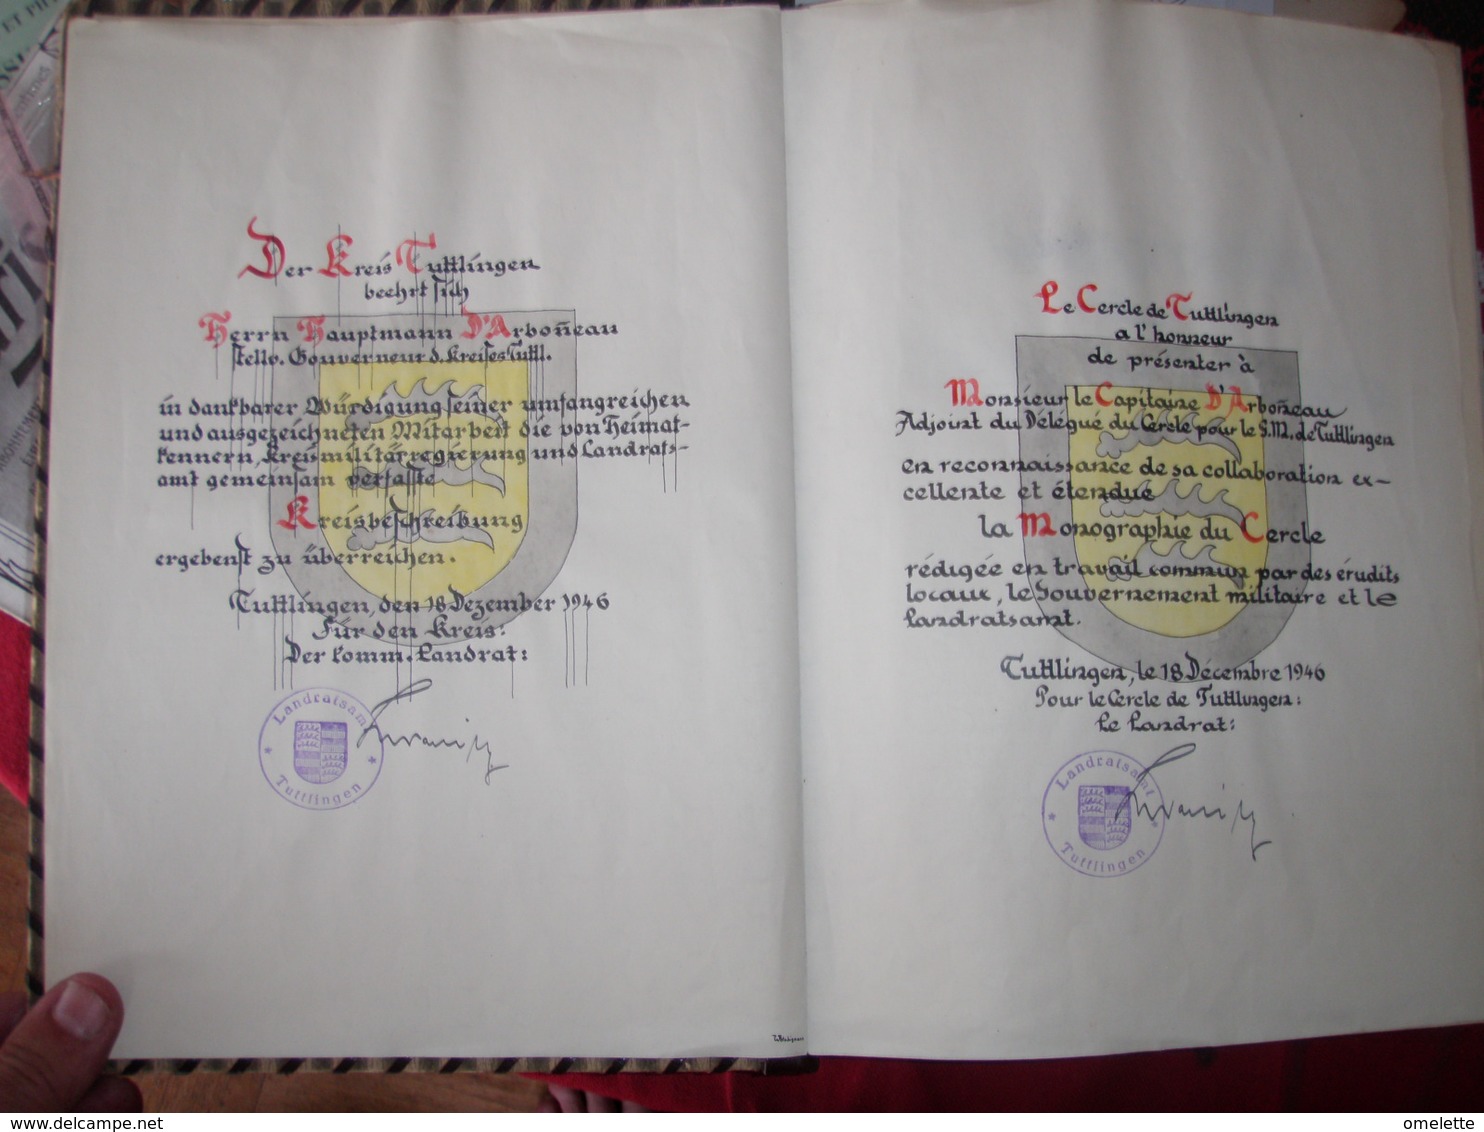 Der Kreis Tuttlingen
beehrt sich
Herrn Hauptmann D'Arboñeau
stellv. Gouverneur d. Kreises Tuttl.
in dankbarer Würdigung seiner umfangreichen
und ausgezeichneten Mitarbeit die von Heimat-
kennern, Kreismilitärregierung und Landrats-
amt gemeinsam verfasste
Kreisbeschreibung
ergebenst zu überreichen.
Tuttlingen, den 18 Dezember 1946
Für den Kreis:
Der komm. Landrat:
Landratsamt
Tuttlingen
Le Cercle de Tuttlingen
a l'honneur
de présenter à
Monsieur le Capitaine D'Arboñeau
Adjoint du Délégué du Cercle pour le G.M. de Tuttlingen
en reconnaissance de sa collaboration ex-
cellente et étendue
la Monographie du Cercle
rédigée en travail commun par des érudits
locaux, le Gouvernement militaire et le
Landratsamt.
Tuttlingen, le 18 Décembre 1946
Pour le Cercle de Tuttlingen:
Le Landrat:
Landratsamt
Tuttlingen
delcampe.net
omelette